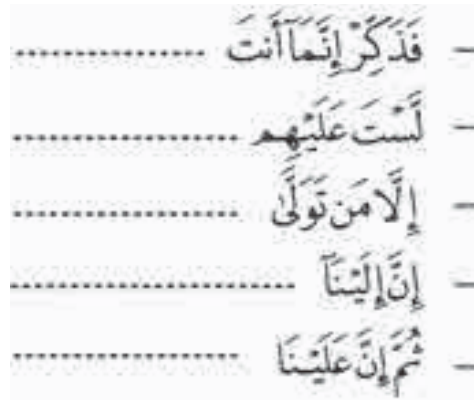 – فَذَكِّرْ إِنَّمَآ أَنتَ ....................
– لَّسْتَ عَلَيْهِم ....................
– إِلَّا مَن تَوَلَّىٰ ....................
– إِنَّ إِلَيْنَآ ....................
– ثُمَّ إِنَّ عَلَيْنَا ....................